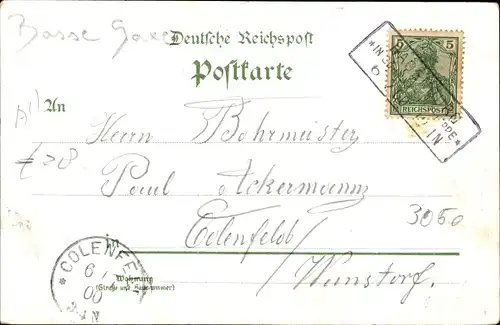 Basse Saxe
Deutsche Reichspost
Postkarte
5 5
REICHSPOST
An
Herrn Bohrmeister
€ 28
Paul Ackermann
3050
in
Colenfeld
Wunstorf.
* COLENFELD
6
00
N
Wohnung
(Straße und Hausnummer)